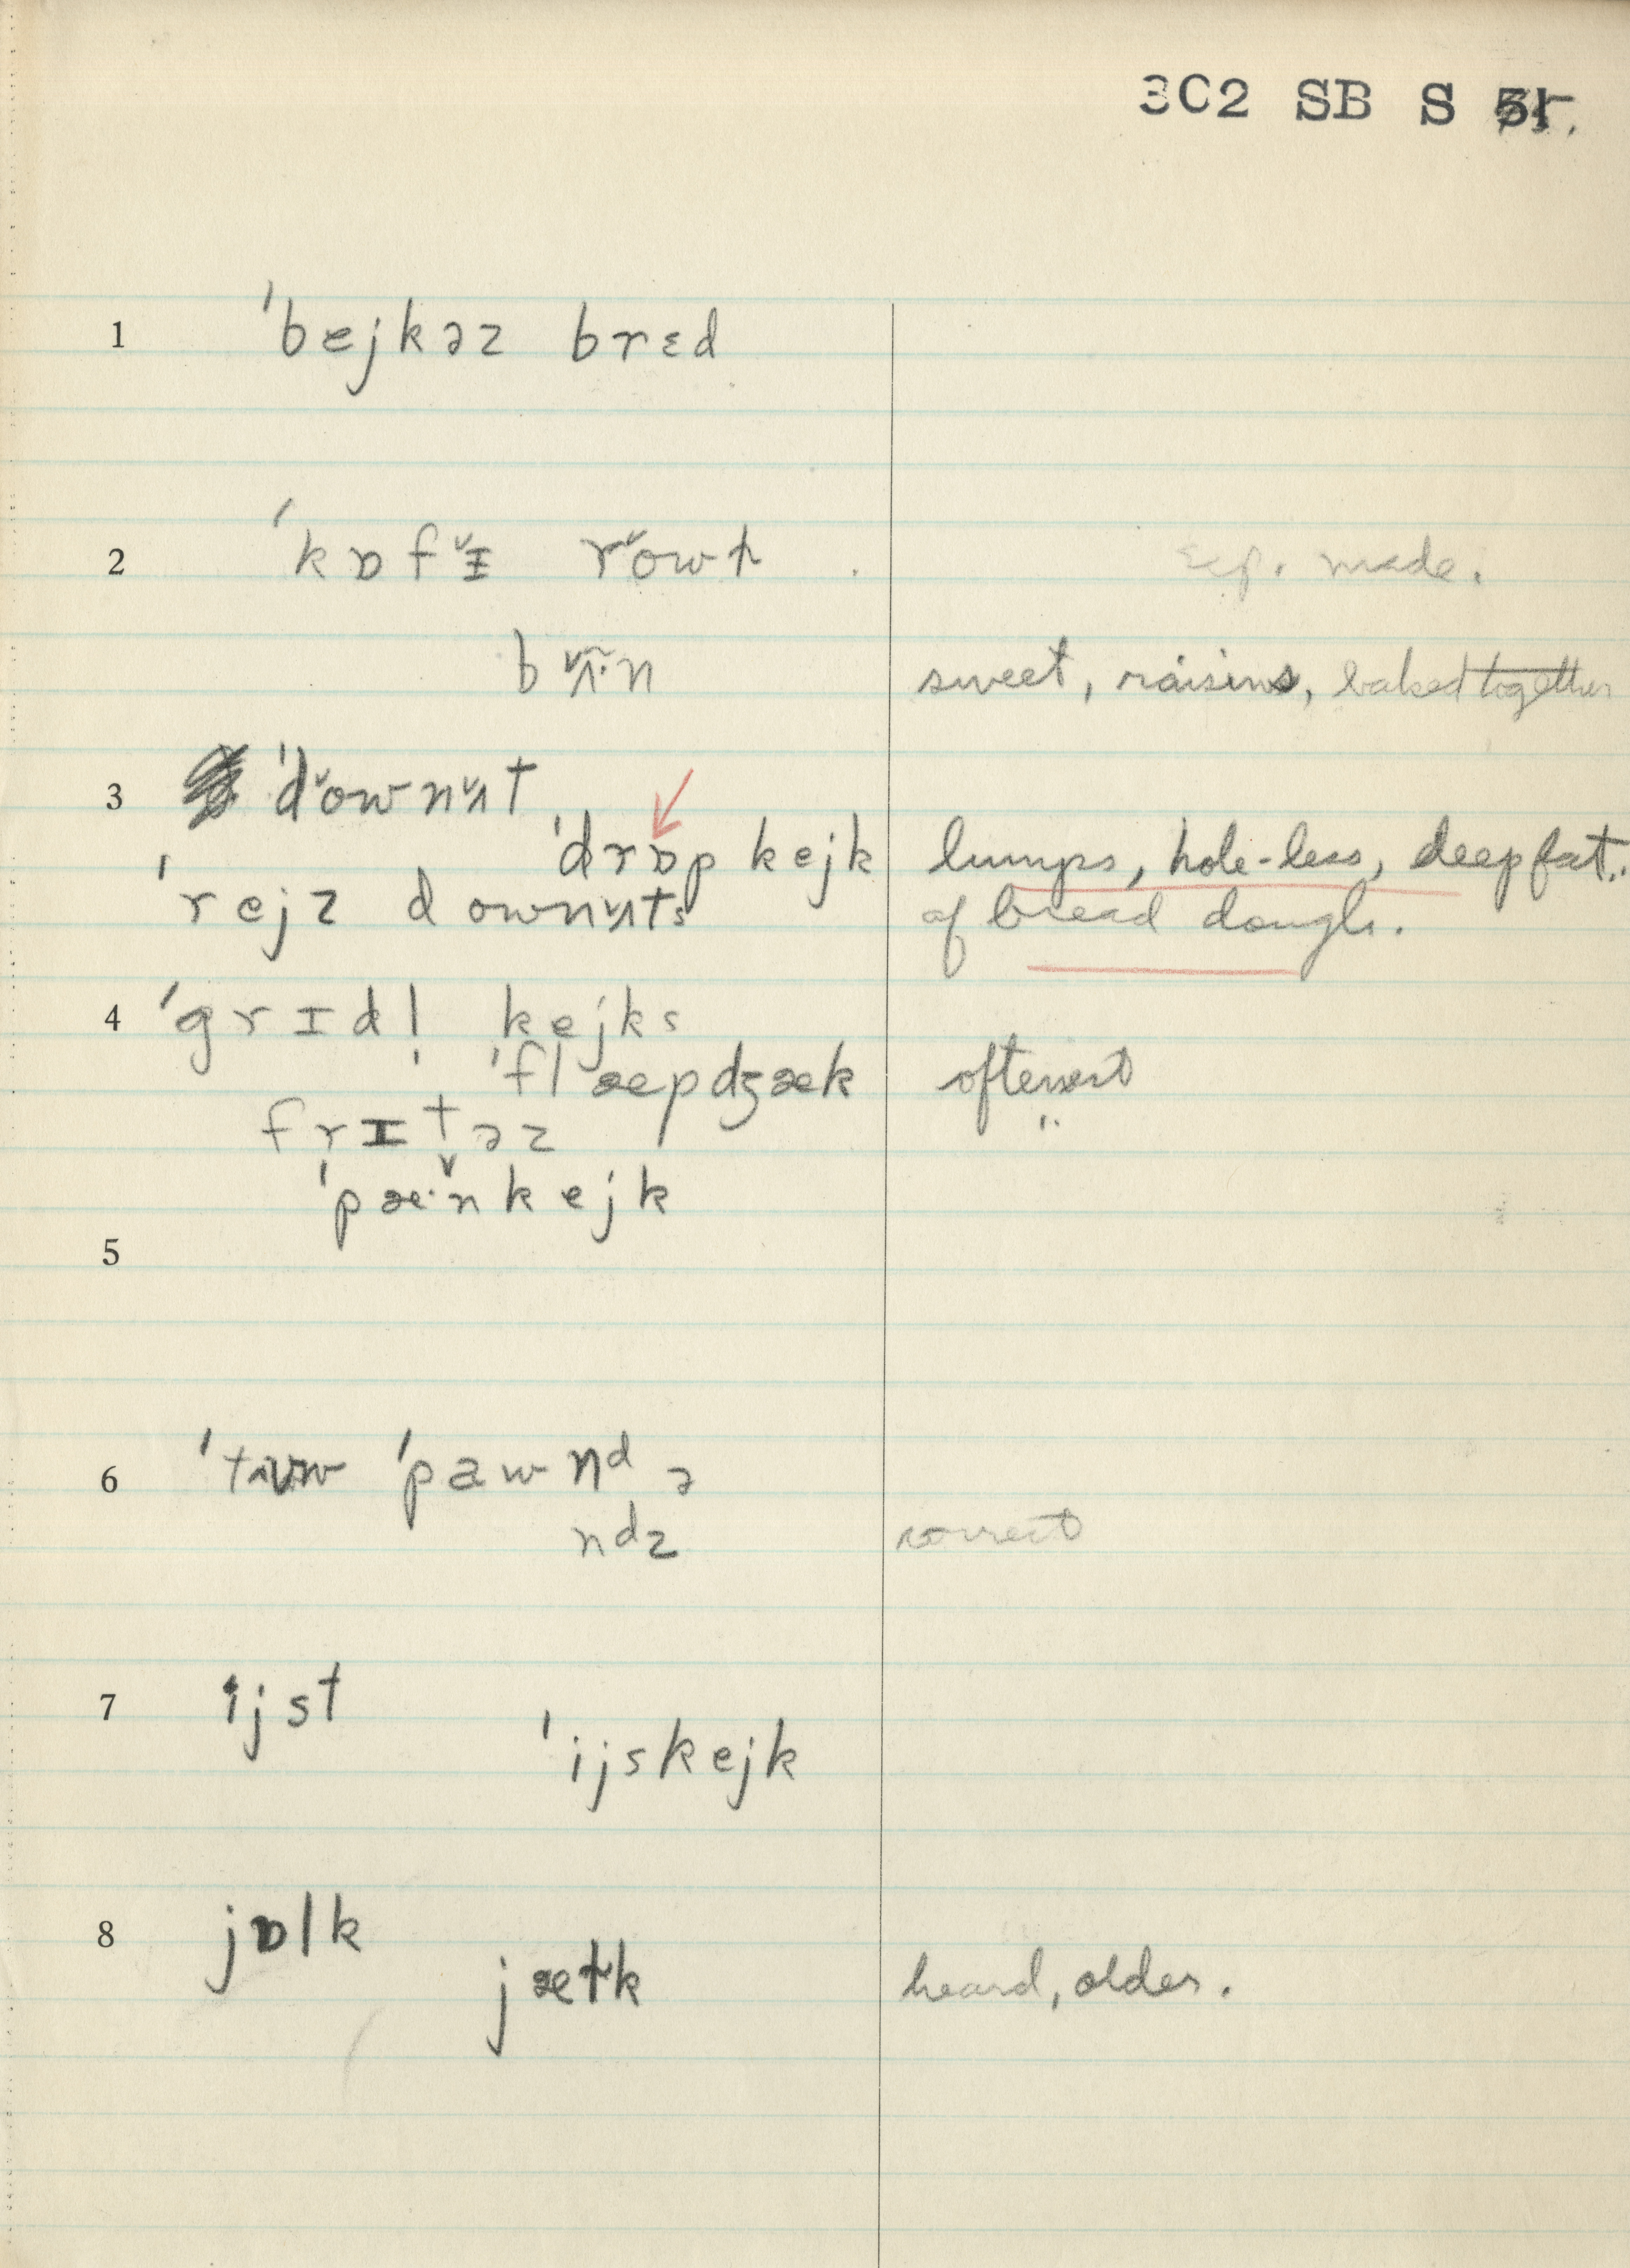 3C2 SB S
1 ˈbejkəz brɛd
2 ˈkɒfɪ̌ rǒwɫ made.
bʌ̌̃·n sweet, raisins, baked together
3 ˈdǒwnʌ̌t
ˈdrɒp kejk lumps, hole-less, deep fat..
ˈrejz downʌts of bread dough.
4 ˈgrɪdl̩ kejks
ˈflæpdʒæk oftenest
frɪtəz
ˈpæ·̌nkejk
5
6 ˈtʉw ˈpawnᵈ ə
nᵈz correct
7 ijst
ˈijskejk
8 jɒlk
jæɫk heard, older.